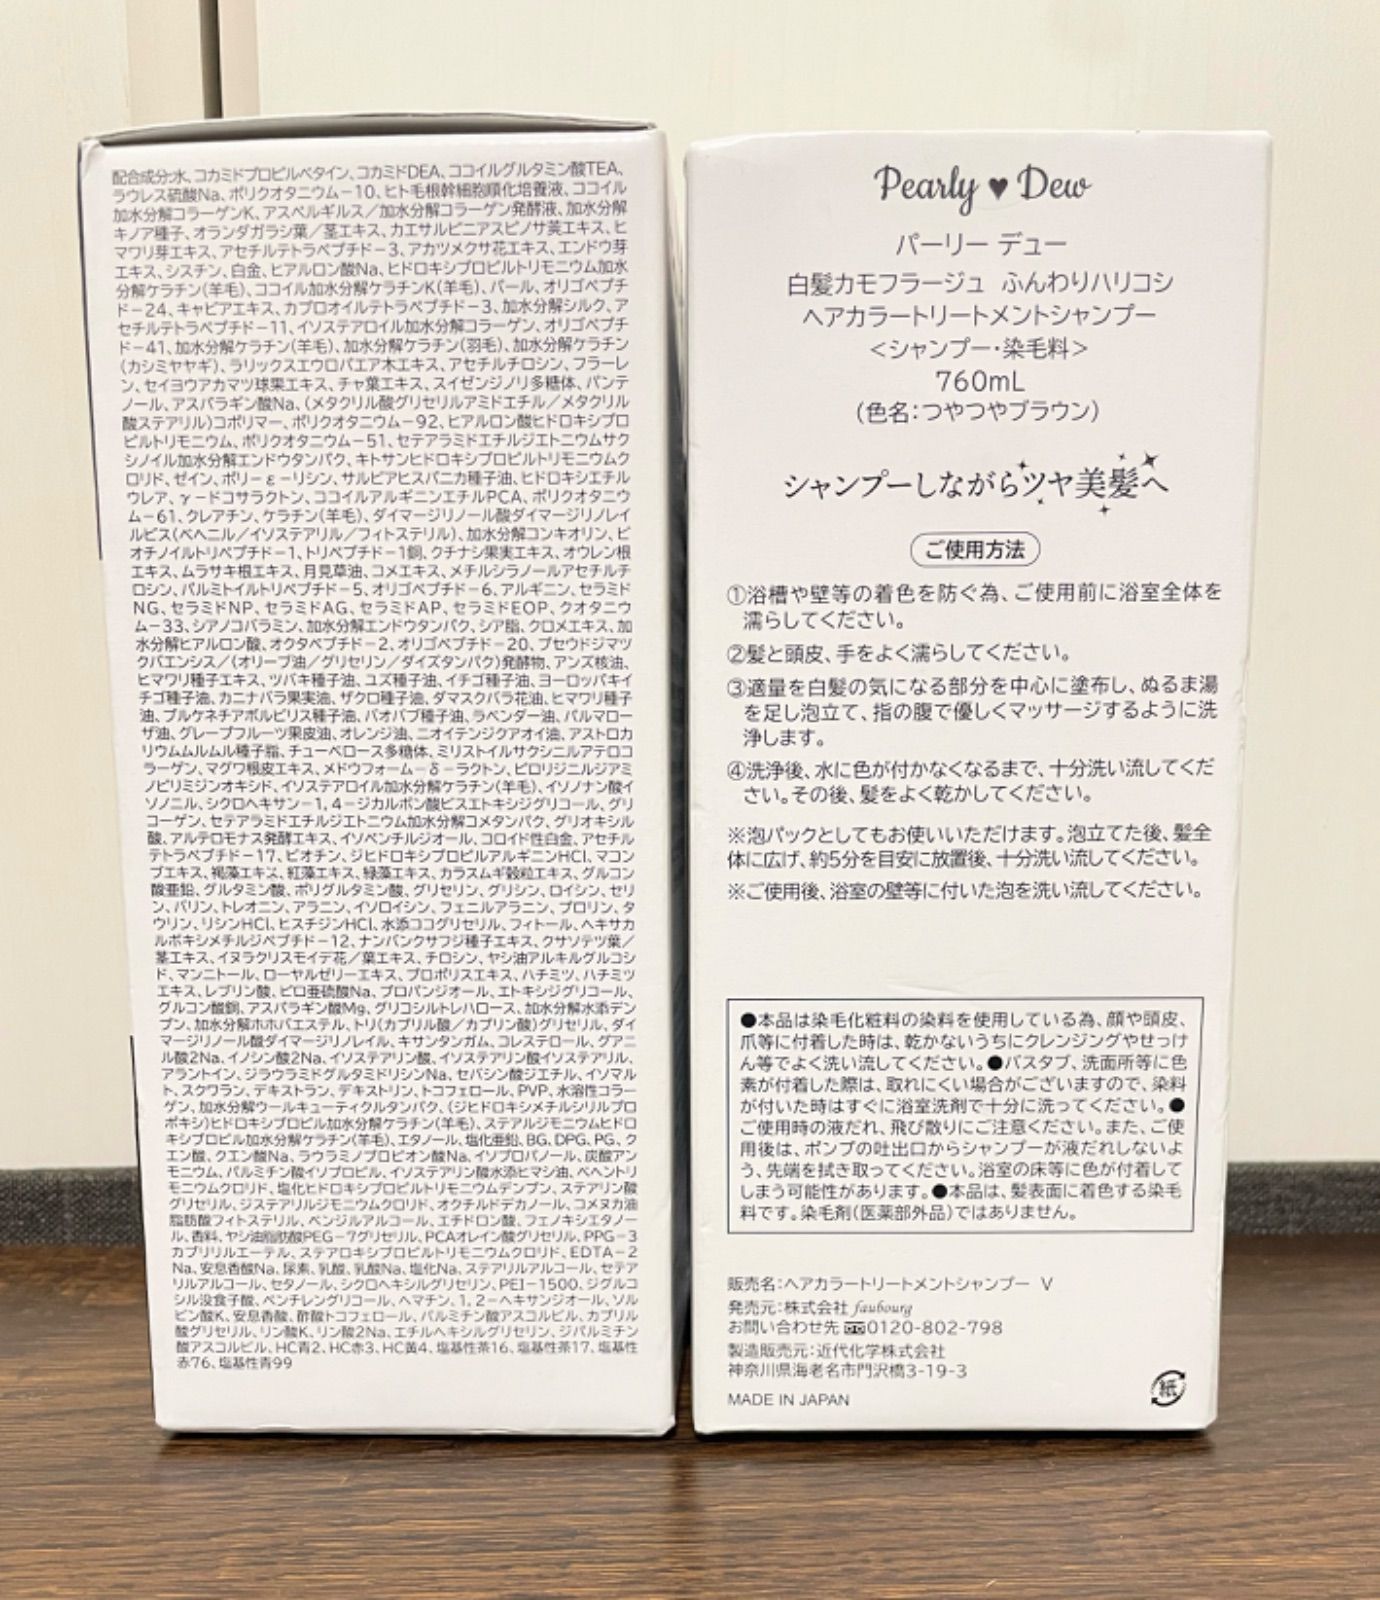 配合成分:水、コカミドプロピルベタイン、コカミドDEA、ココイルグルタミン酸TEA、
ラウレス硫酸Na、ポリクオタニウム－10、ヒト毛根幹細胞順化培養液、ココイル
加水分解コラーゲンK、アスペルギルス／加水分解コラーゲン発酵液、加水分解
キノア種子、オランダガラシ葉／茎エキス、カエサルピニアスピノサ莢エキス、ヒ
マワリ芽エキス、アセチルテトラペプチド－3、アカツメクサ花エキス、エンドウ芽
エキス、シスチン、白金、ヒアルロン酸Na、ヒドロキシプロピルトリモニウム加水
分解ケラチン(羊毛)、ココイル加水分解ケラチンK(羊毛)、パール、オリゴペプチ
ド－24、キャビアエキス、カプロオイルテトラペプチド－3、加水分解シルク、ア
セチルテトラペプチド－11、イソステアロイル加水分解コラーゲン、オリゴペプチ
ド－41、加水分解ケラチン(羊毛)、加水分解ケラチン(羽毛)、加水分解ケラチン
(カシミヤヤギ)、ラリックスエウロパエア木エキス、アセチルチロシン、フラーレ
ン、セイヨウアカマツ球果エキス、チャ葉エキス、スイゼンジノリ多糖体、パンテ
ノール、アスパラギン酸Na、(メタクリル酸グリセリルアミドエチル／メタクリル
酸ステアリル)コポリマー、ポリクオタニウム－92、ヒアルロン酸ヒドロキシプロ
ピルトリモニウム、ポリクオタニウム－51、セテアラミドエチルジエトニウムサク
シノイル加水分解エンドウタンパク、キトサンヒドロキシプロピルトリモニウムク
ロリド、ゼイン、ポリ－ε－リシン、サルビアヒスパニカ種子油、ヒドロキシエチル
ウレア、γ－ドコサラクトン、ココイルアルギニンエチルPCA、ポリクオタニウ
ム－61、クレアチン、ケラチン(羊毛)、ダイマージリノール酸ダイマージリノレイ
ルビス(ベヘニル／イソステアリル／フィトステリル)、加水分解コンキオリン、ビ
オチノイルトリペプチド－1、トリペプチド－1銅、クチナシ果実エキス、オウレン根
エキス、ムラサキ根エキス、月見草油、コメエキス、メチルシラノールアセチルチ
ロシン、パルミトイルトリペプチド－5、オリゴペプチド－6、アルギニン、セラミド
NG、セラミドNP、セラミドAG、セラミドAP、セラミドEOP、クオタニウ
ム－33、シアノコバラミン、加水分解エンドウタンパク、シア脂、クロメエキス、加
水分解ヒアルロン酸、オクタペプチド－2、オリゴペプチド－20、プセウドジマツ
クバエンシス／(オリーブ油／グリセリン／ダイズタンパク)発酵物、アンズ核油、
ヒマワリ種子エキス、ツバキ種子油、ユズ種子油、イチゴ種子油、ヨーロッパキイ
チゴ種子油、カニナバラ果実油、ザクロ種子油、ダマスクバラ花油、ヒマワリ種子
油、プルケネチアボルビリス種子油、バオバブ種子油、ラベンダー油、パルマロー
ザ油、グレープフルーツ果皮油、オレンジ油、ニオイテンジクアオイ油、アストロカ
リウムムルムル種子脂、チューベロース多糖体、ミリストイルサクシニルアテロコ
ラーゲン、マグワ根皮エキス、メドウフォーム－δ－ラクトン、ピロリジニルジアミ
ノピリミジンオキシド、イソステアロイル加水分解ケラチン(羊毛)、イソノナン酸イ
ソノニル、シクロヘキサン－1，4－ジカルボン酸ビスエトキシジグリコール、グリ
コーゲン、セテアラミドエチルジエトニウム加水分解コメタンパク、グリオキシル
酸、アルテロモナス発酵エキス、イソペンチルジオール、コロイド性白金、アセチル
テトラペプチド－17、ビオチン、ジヒドロキシプロピルアルギニンHCl、マコン
ブエキス、褐藻エキス、紅藻エキス、緑藻エキス、カラスムギ穀粒エキス、グルコン
酸亜鉛、グルタミン酸、ポリグルタミン酸、グリセリン、グリシン、ロイシン、セリ
ン、バリン、トレオニン、アラニン、イソロイシン、フェニルアラニン、プロリン、タ
ウリン、リシンHCl、ヒスチジンHCl、水添ココグリセリル、フィトール、ヘキサカ
ルボキシメチルジペプチド－12、ナンバンクサフジ種子エキス、クサソテツ葉／
茎エキス、イヌラクリスモイデ花／葉エキス、チロシン、ヤシ油アルキルグルコシ
ド、マンニトール、ローヤルゼリーエキス、プロポリスエキス、ハチミツ、ハチミツ
エキス、レブリン酸、ピロ亜硫酸Na、プロパンジオール、エトキシジグリコール、
グルコン酸銅、アスパラギン酸Mg、グリコシルトレハロース、加水分解水添デン
プン、加水分解ホホバエステル、トリ(カプリル酸／カプリン酸)グリセリル、ダイ
マージリノール酸ダイマージリノレイル、キサンタンガム、コレステロール、グアニ
ル酸2Na、イノシン酸2Na、イソステアリン酸、イソステアリン酸イソステアリル、
アラントイン、ジラウラミドグルタミドリシンNa、セバシン酸ジエチル、イソマル
ト、スクワラン、デキストラン、デキストリン、トコフェロール、PVP、水溶性コラー
ゲン、加水分解ウールキューティクルタンパク、(ジヒドロキシメチルシリルプロ
ポキシ)ヒドロキシプロピル加水分解ケラチン(羊毛)、ステアルジモニウムヒドロ
キシプロピル加水分解ケラチン(羊毛)、エタノール、塩化亜鉛、BG、DPG、PG、ク
エン酸、クエン酸Na、ラウラミノプロピオン酸Na、イソプロパノール、炭酸アン
モニウム、パルミチン酸イソプロピル、イソステアリン酸水添ヒマシ油、ベヘントリ
モニウムクロリド、塩化ヒドロキシプロピルトリモニウムデンプン、ステアリン酸
グリセリル、ジステアリルジモニウムクロリド、オクチルドデカノール、コメヌカ油
脂肪酸フィトステリル、ベンジルアルコール、エチドロン酸、フェノキシエタノー
ル、香料、ヤシ油脂肪酸PEG－7グリセリル、PCAオレイン酸グリセリル、PPG－3
カプリリルエーテル、ステアロキシプロピルトリモニウムクロリド、EDTA－2
Na、安息香酸Na、尿素、乳酸、乳酸Na、塩化Na、ステアリルアルコール、セテア
リルアルコール、セタノール、シクロヘキシルグリセリン、PEI－1500、ジグルコ
シル没食子酸、ペンチレングリコール、ヘマチン、1，2－ヘキサンジオール、ソル
ビン酸K、安息香酸、酢酸トコフェロール、パルミチン酸アスコルビル、カプリル
酸グリセリル、リン酸K、リン酸2Na、エチルヘキシルグリセリン、ジパルミチン
酸アスコルビル、HC青2、HC赤3、HC黄4、塩基性茶16、塩基性茶17、塩基性
赤76、塩基性青99
Pearly ♥ Dew
パーリー デュー
白髪カモフラージュ ふんわりハリコシ
ヘアカラートリートメントシャンプー
＜シャンプー・染毛料＞
760mL
(色名:つやつやブラウン)
シャンプーしながらツヤ美髪へ
ご使用方法
①浴槽や壁等の着色を防ぐ為、ご使用前に浴室全体を
濡らしてください。
②髪と頭皮、手をよく濡らしてください。
③適量を白髪の気になる部分を中心に塗布し、ぬるま湯
を足し泡立て、指の腹で優しくマッサージするように洗
浄します。
④洗浄後、水に色が付かなくなるまで、十分洗い流してくだ
さい。その後、髪をよく乾かしてください。
※泡パックとしてもお使いいただけます。泡立てた後、髪全
体に広げ、約5分を目安に放置後、十分洗い流してください。
※ご使用後、浴室の壁等に付いた泡を洗い流してください。
●本品は染毛化粧料の染料を使用している為、顔や頭皮、
爪等に付着した時は、乾かないうちにクレンジングやせっけ
ん等でよく洗い流してください。●バスタブ、洗面所等に色
素が付着した際は、取れにくい場合がございますので、染料
が付いた時はすぐに浴室洗剤で十分に洗ってください。●
ご使用時の液だれ、飛び散りにご注意ください。また、ご使
用後は、ポンプの吐出口からシャンプーが液だれしないよ
う、先端を拭き取ってください。浴室の床等に色が付着して
しまう可能性があります。●本品は、髪表面に着色する染毛
料です。染毛剤(医薬部外品)ではありません。
販売名:ヘアカラートリートメントシャンプー V
発売元:株式会社 faubourg
お問い合わせ先 0120-802-798
製造販売元:近代化学株式会社
神奈川県海老名市門沢橋3-19-3
MADE IN JAPAN
紙